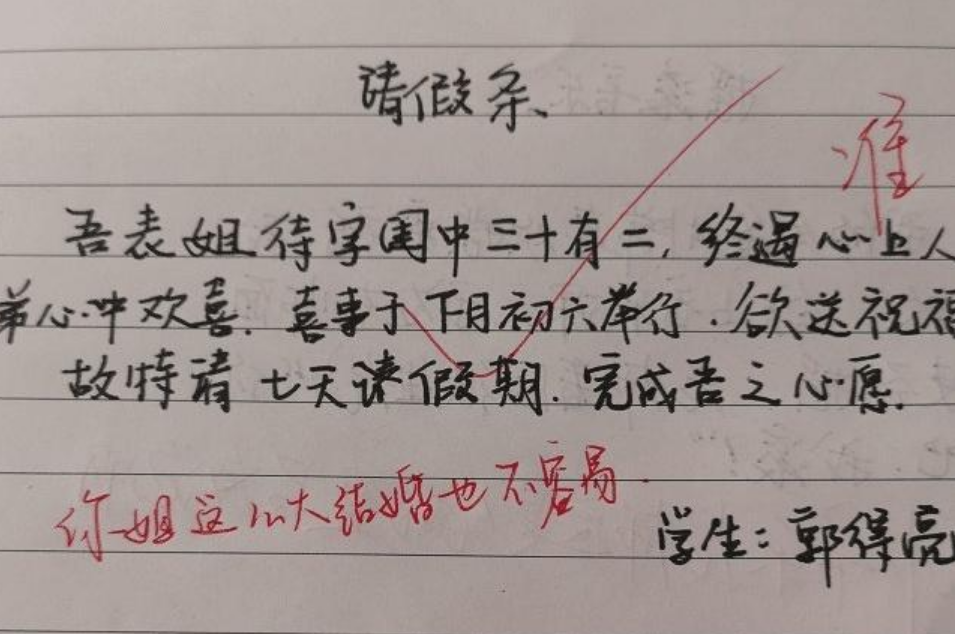 请假条、
准
吾表姐待字闺中三十有二,终遇心上人
弟心中欢喜.喜事于下月初六举行.欲送祝福
故特请七天请假期.完成吾之心愿.
你姐这么大结婚也不容易.
学生:郭得亮